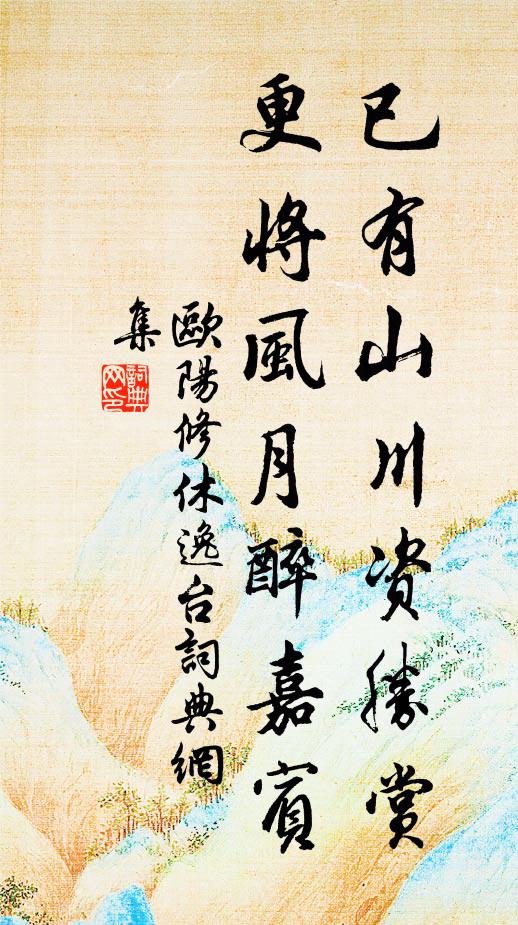 已有山川资勝賞
更將風月醉嘉賓
歐陽修休逸台詞典網
集
詞典網印